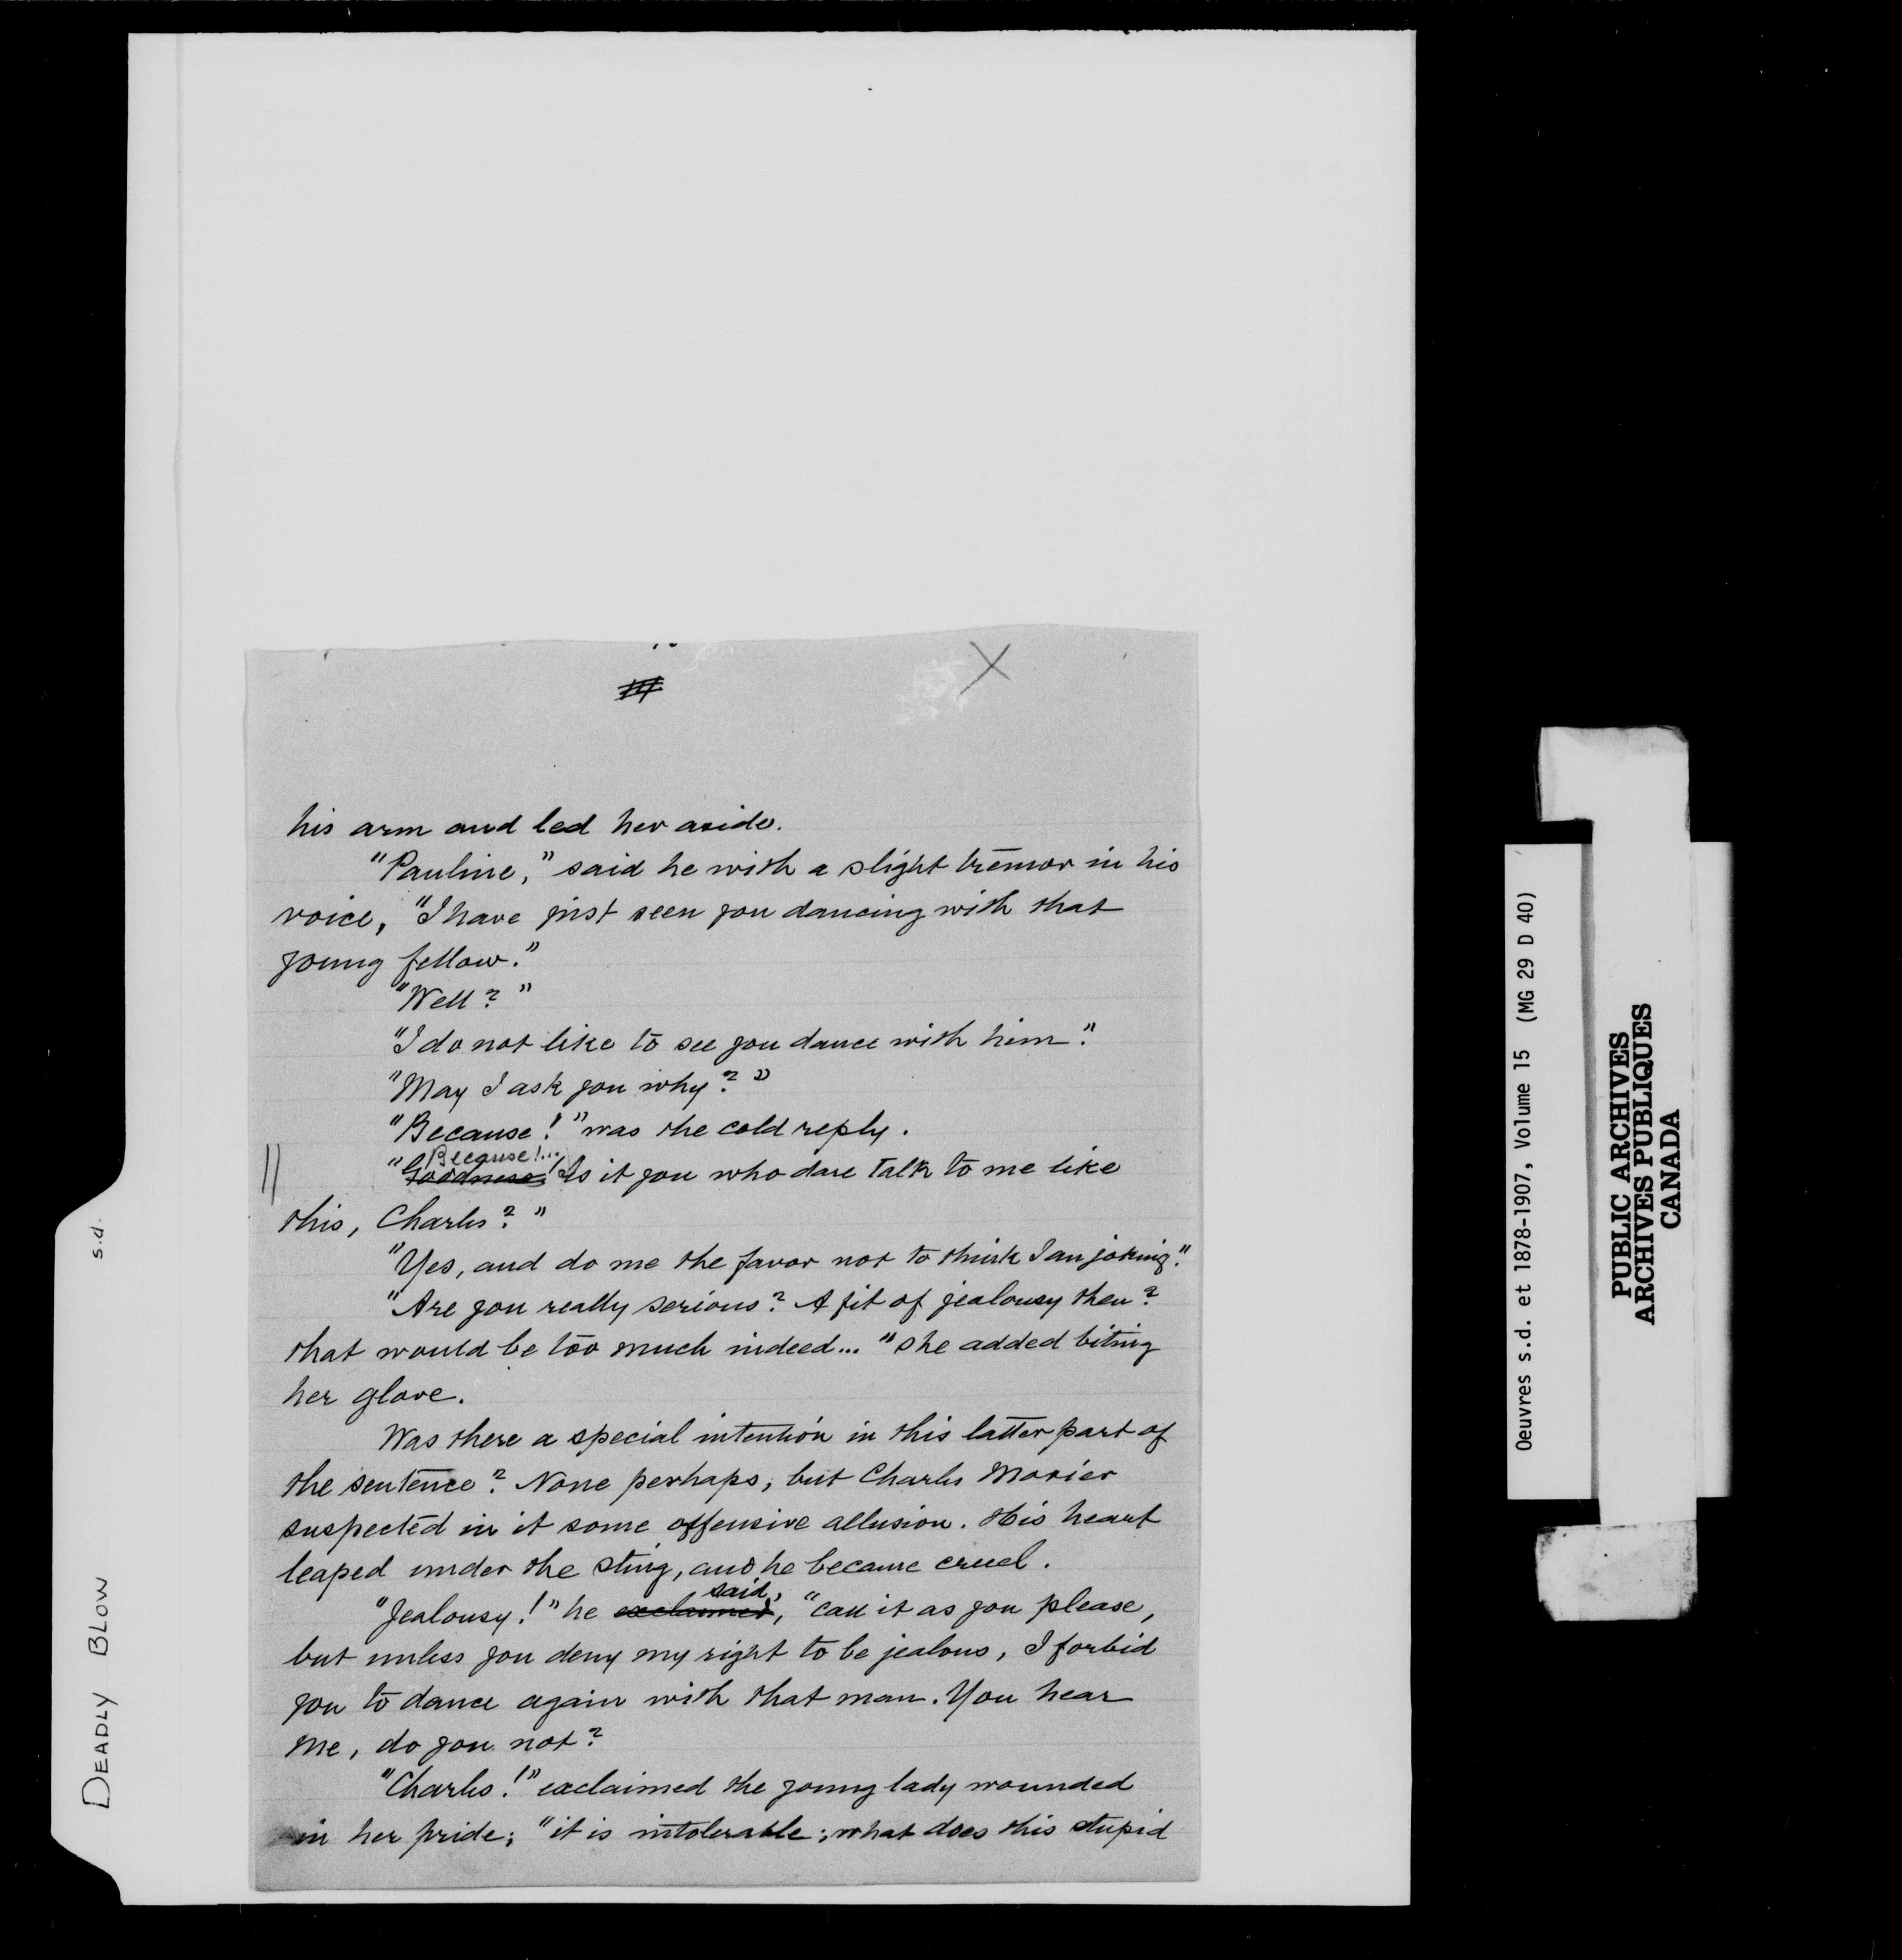 X
his arm and led her aside.
"Pauline," said he with a slight tremor in his
voice, "I have just seen you dancing with that
young fellow."
"Well?"
"I do not like to see you dance with him."
"May I ask you why?"
"Because!" was the cold reply.
Because!...
"Goodness! Is it you who dare talk to me like
this, Charles?"
"Yes, and do me the favor not to think I am joking."
"Are you really serious? A fit of jealousy then?
that would be too much indeed..." she added biting
her glove.
Was there a special intention in this latter part of
the sentence? None perhaps, but Charles Morier
suspected in it some offensive allusion. His heart
leaped under the sting, and he became cruel.
said,
"Jealousy!" he exclaimed, "call it as you please,
but unless you deny my right to be jealous, I forbid
you to dance again with that man. You hear
me, do you not?
"Charles!" exclaimed the young lady wounded
in her pride; "it is intolerable; what does this stupid
DEADLY BLOW s.d.
Oeuvres s.d. et 1878-1907, Volume 15 (MG 29 D 40)
PUBLIC ARCHIVES
ARCHIVES PUBLIQUES
CANADA